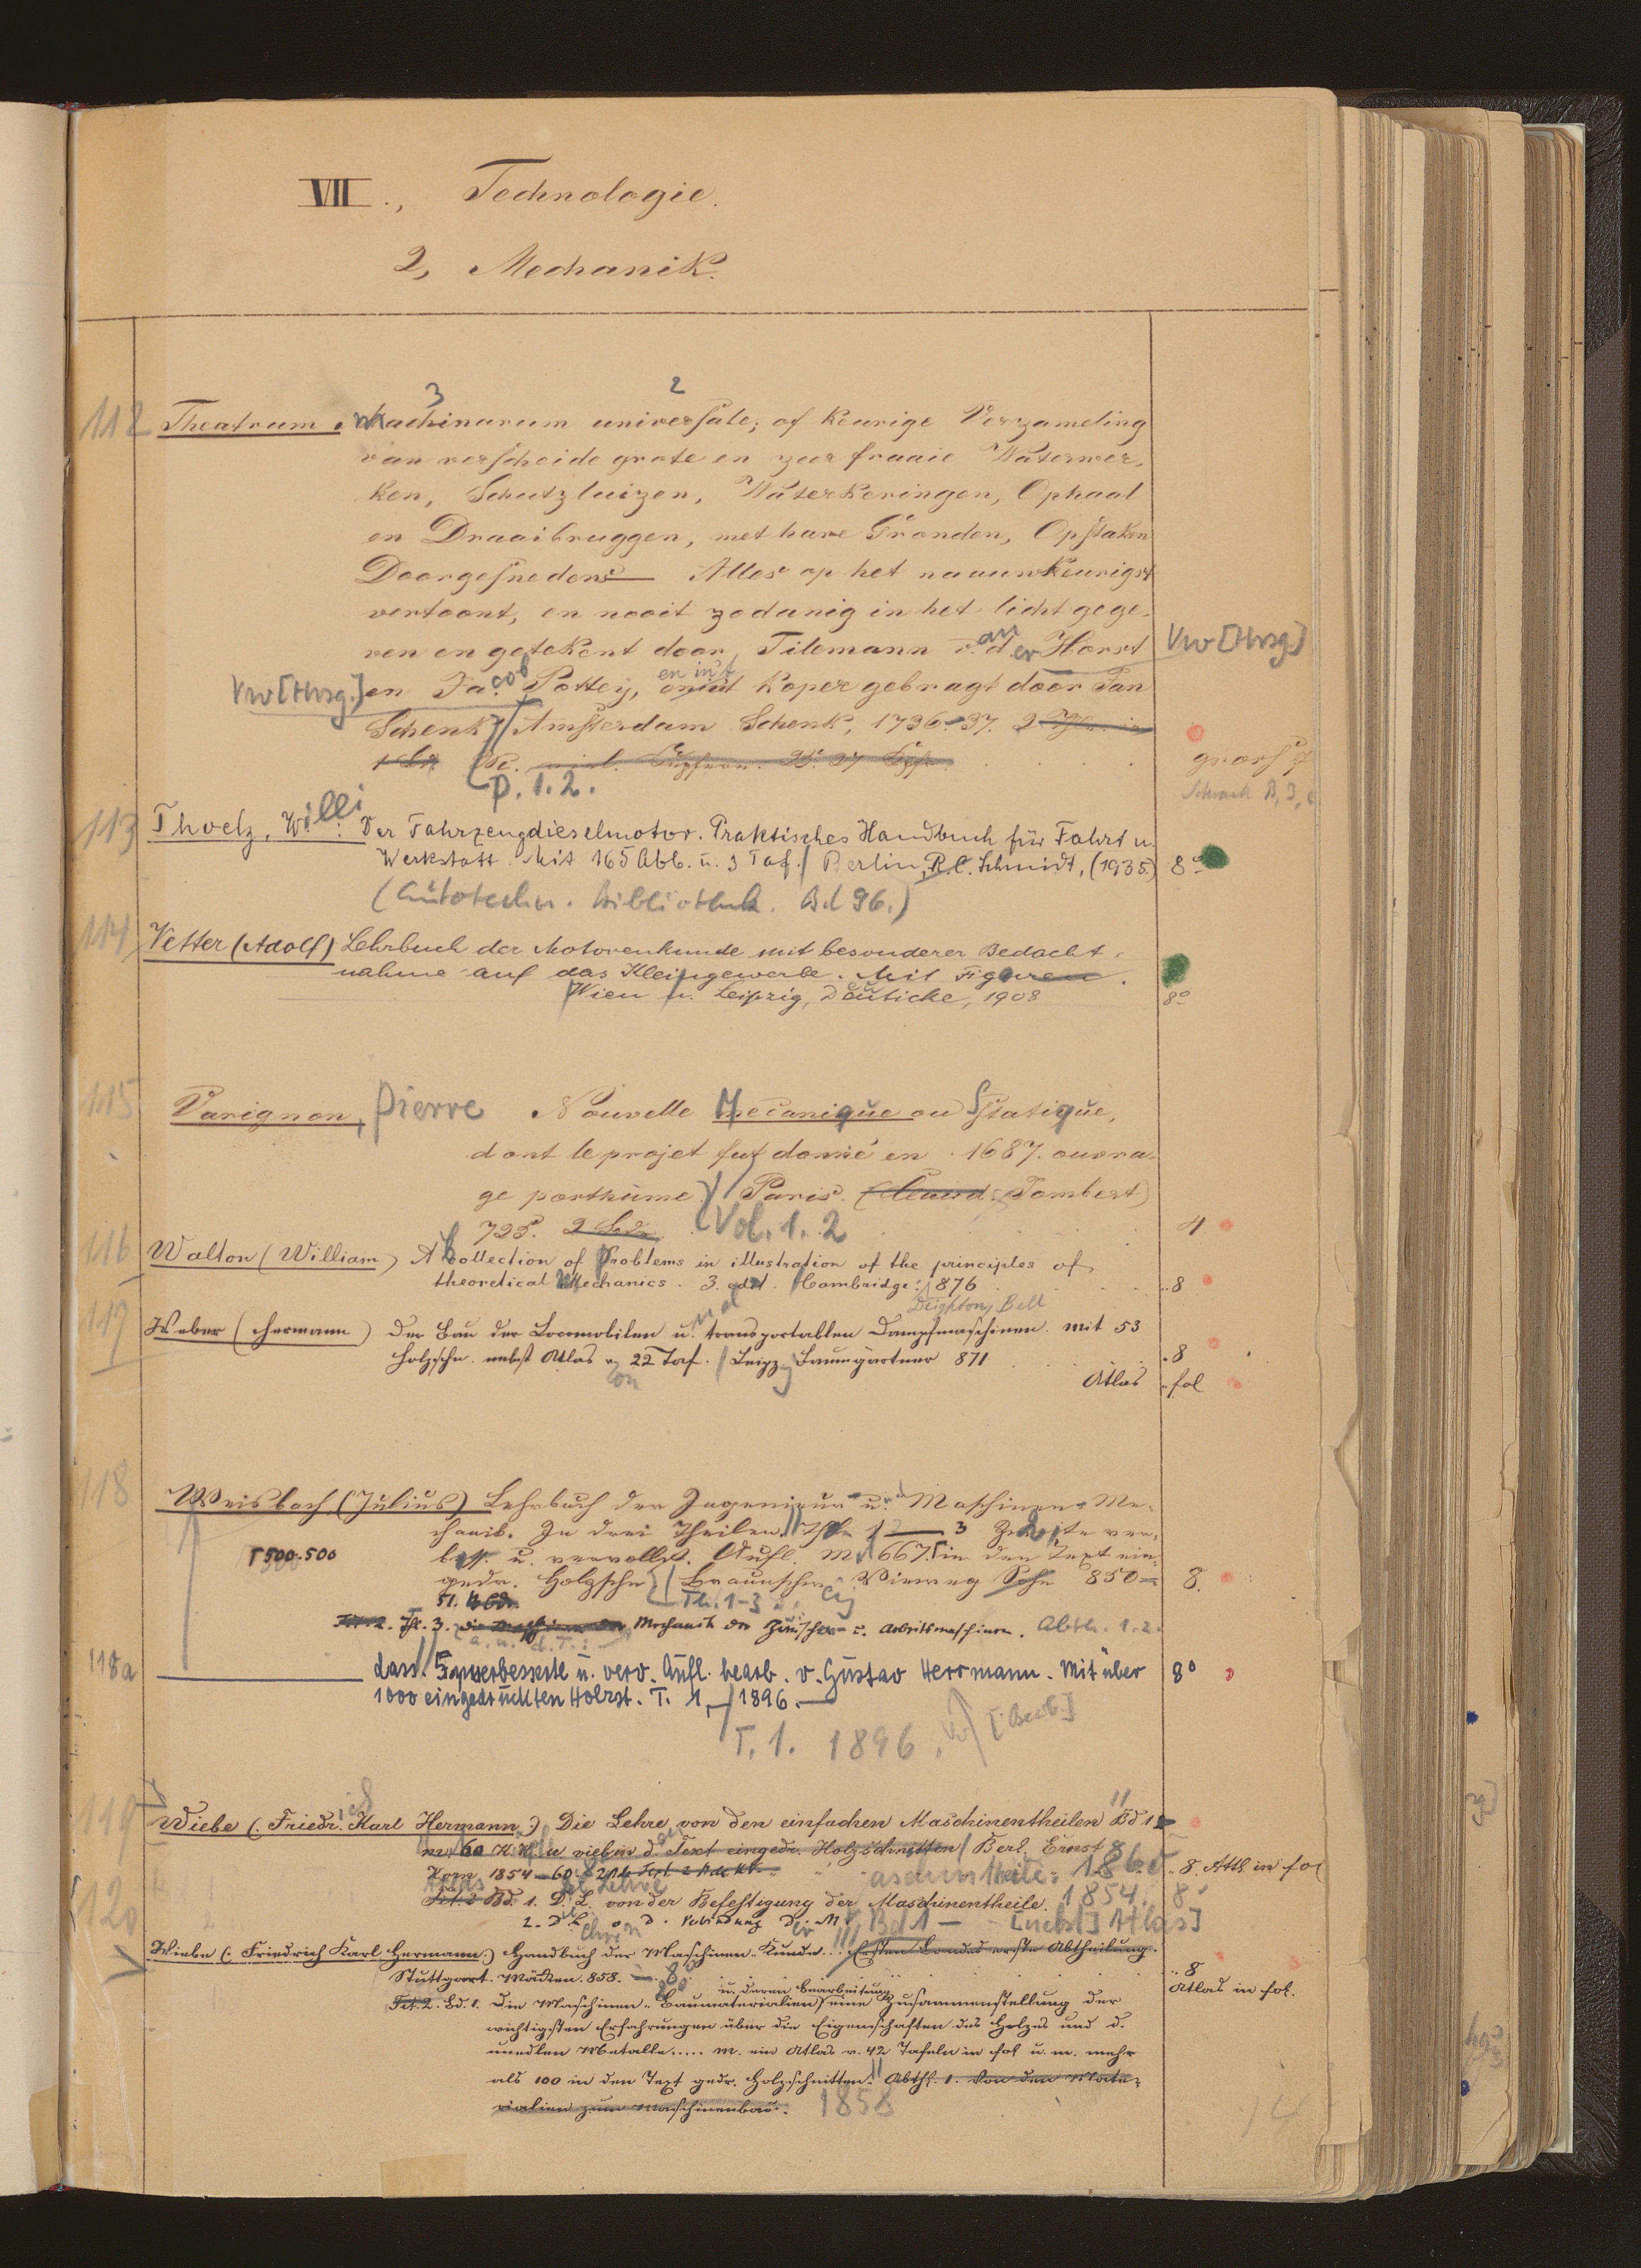 VII., Technologie.
2, Mechanik.
3 2
112 Theatrum Machinarum universale; of keurige Verzameling
van verscheide grote en zeer fraaie Waterwer-
ken, Schutzluizen, Waterkeringen, Ophaal
en Draaibruggen, met hare Gronden, Opstaken
Doorgesnedens Alles op het naauwkeurigst
vertoont, en nooit zodanig in het licht gege-
ven en getekent door Tilemann van der Horst Vw [Hrsg]
Vw [Hrsg.] en Jacob Polley, en in't koper gebragt door Jan
Schenk Amsterdam Schenk, 1736-37. 2
P. 1.2.
gross f
Schrank B, 3,
113 Thoelz, Willi: Der Fahrzeugdieselmotor. Praktisches Handbuch für Fahrt u.
Werkstatt. Mit 165 Abb. u. 3 Taf. Berlin, R. C. Schmidt, (1935) 8°
(Autotechn. Bibliothek. Bd 96.)
114 Vetter (Adolf) Lehrbuch der Motorenkunde mit besonderer Bedacht-
nahme auf das Kleingewerbe. Mit Figuren.
Wien u. Leipzig, Deuticke, 1908 8°
115 Varignon, Pierre Nouvelle Mecanique ou Statique,
dont le projet fut donné en 1687. ouvra-
ge posthume Paris. (Claud. Jombert)
725. 2 Bde. Vol. 1. 2 4
116 Walton (William) A Collection of Problems in illustration of the principles of
theoretical Mechanics. 3. edit. Cambridge: 876 8
Deighton, Bell
117 Weber (Hermann) Der Bau der Locomobilen und transportablen Dampfmaschinen. Mit 53
Holzschn. nebst Atlas von 22 Taf. Leipzig Baumgärtner 871 8
Atlas fol
118 Weisbach (Julius) Lehrbuch der Ingenieur- und Maschinen-Me-
chanik. In drei Theilen. Thle 1 — 3 Zweite ver-
bess. u. vervollst. Aufl. M. 667 in den Text ein-
T 500.500
gedr. Holzschn. Braunschweig Vieweg Sohn 850 8.
Th. 1-3
Tit. 2. Th. 3. Mechanik der Zwischen- u. Arbeitsmaschinen. Abth. 1.2.
a. u. d. T.:
118a dass. 5. verbesserte u. verv. Aufl. bearb. v. Gustav Herrmann. Mit über 8°
1000 eingedrückten Holzst. T. 1, 1896. —
T. 1. 1896. [Bearb.]
119 Wiebe (Friedrich Karl Hermann) Die Lehre von den einfachen Maschinentheilen Bd 1
in d. Text eingedr. Holzschnitten Berl. Ernst &
Korn 1854-60 8. Atl. in fol
Maschinentheile. 1860
Tit. 2 Bd. 1. D. L. von der Befestigung der Maschinentheile. 1854. 8°
2. D. L. v. d. Verbindung der M. Bd 1 — [nebst] Atlas]
120 Wiebe (Friedrich Karl Hermann) Handbuch der Maschinen-Kunde. Ersten Bandes erste Abtheilung.
Stuttgart. Mäcken. 858. 8
Atlas in fol.
u. deren Bearbeitung
Tit. 2. Bd. 1. Die Maschinen-Baumaterialien eine Zusammenstellung der
wichtigsten Erfahrungen über die Eigenschaften des Holzes und d.
unedlen Metalle..... m. ein Atlas v. 42 Tafeln in fol u. m. mehr
als 100 in den Text gedr. Holzschnitten. Abthl. 1. Von den Mate-
rialien zum Maschinenbau. 1858
14